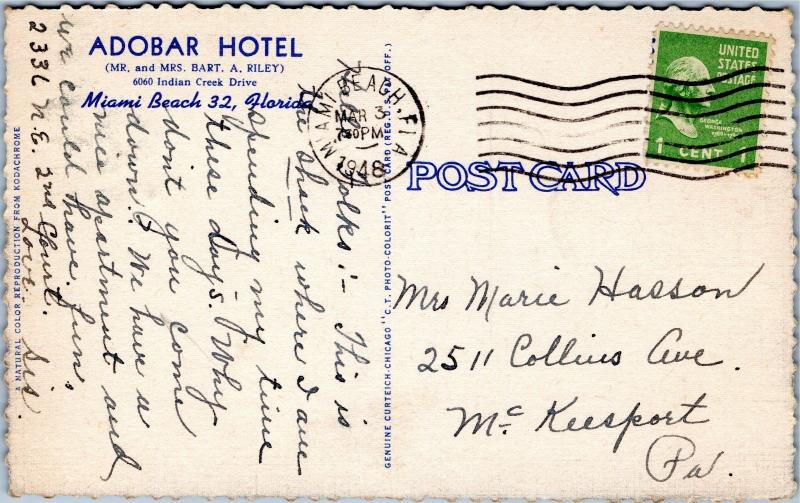 ADOBAR HOTEL
(MR. and MRS. BART. A. RILEY)
6060 Indian Creek Drive
Miami Beach 32, Florida
Hello Folks:- This is
the shak where I am
spending my time
these days. Why
don't you come
down? We have a
nice apartment and
we could have fun.
Love Sis.
2336 N.E. 2nd Court.
A NATURAL COLOR REPRODUCTION FROM KODACHROME
GENUINE CURTEICH-CHICAGO "C.T. PHOTO-COLORIT" POST CARD (REG. U.S. PAT. OFF.)
MIAMI BEACH, FLA.
MAR 3
7:30 PM
1948
POST CARD
UNITED
STATES
POSTAGE
GEORGE
WASHINGTON
1 CENT 1
Mrs Marie Hasson
2511 Collins Ave.
McKeesport
Pa.